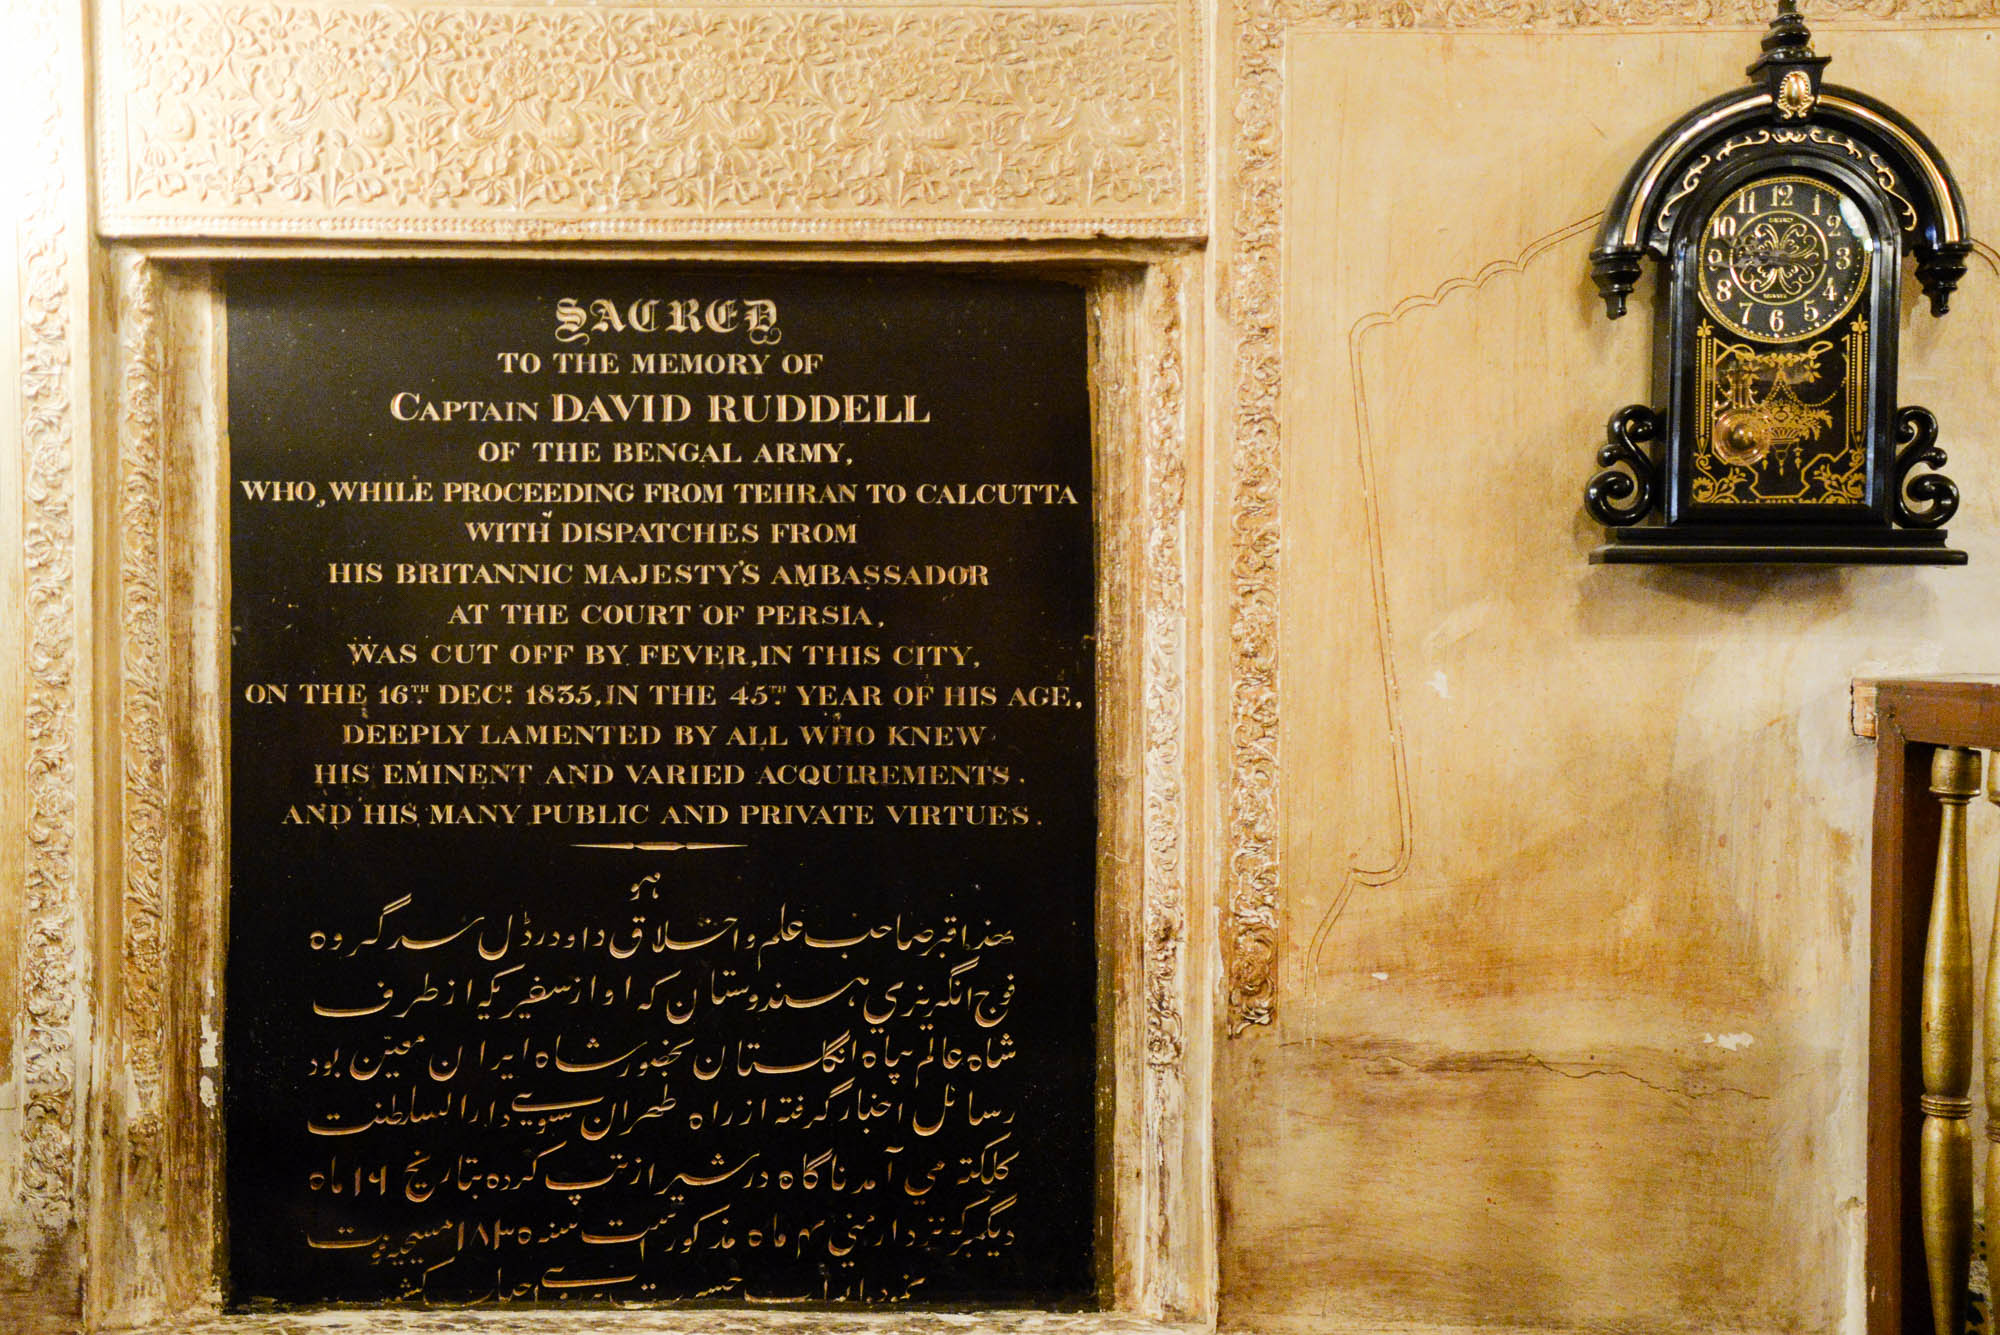 SACRED
TO THE MEMORY OF
CAPTAIN DAVID RUDDELL
OF THE BENGAL ARMY,
WHO, WHILE PROCEEDING FROM TEHRAN TO CALCUTTA
WITH DISPATCHES FROM
HIS BRITANNIC MAJESTY'S AMBASSADOR
AT THE COURT OF PERSIA,
WAS CUT OFF BY FEVER, IN THIS CITY,
ON THE 16TH DECR. 1835, IN THE 45TH YEAR OF HIS AGE,
DEEPLY LAMENTED BY ALL WHO KNEW
HIS EMINENT AND VARIED ACQUIREMENTS.
AND HIS MANY PUBLIC AND PRIVATE VIRTUES.
هو
هذا قبر صاحب علم و اخلاق داود رڈل سرگروه
فوج انگریزي هندوستان که او از سفیریکه از طرف
شاه عالم پناه انگلستان بحضور شاه ایران معیّن بود
رسائل اخبار گرفته از راه طهران سوي دارالسلطنت
کلکته مي آمد ناگاه در شیراز تپ کرده بتاریخ ۱۶ ماه
دیگمبر که نزد ارمني ۴ ماه مذکور است سنه ۱۸۳۵ مسیحیه فوت
نمود
12
1
2
3
4
5
6
7
8
9
10
11
QUARTZ